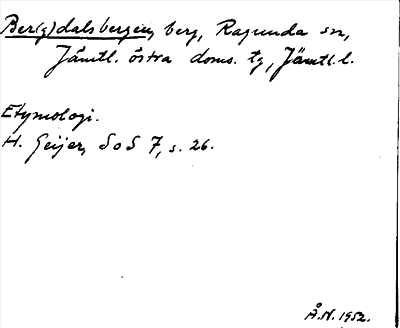 Ber(g)dalsbergen, berg, Ragunda sn,
Jämtl. östra doms. tg, Jämtl. l.
Etymologi.
H. Geijer, SoS 7, s. 26.
Å.N. 1952.